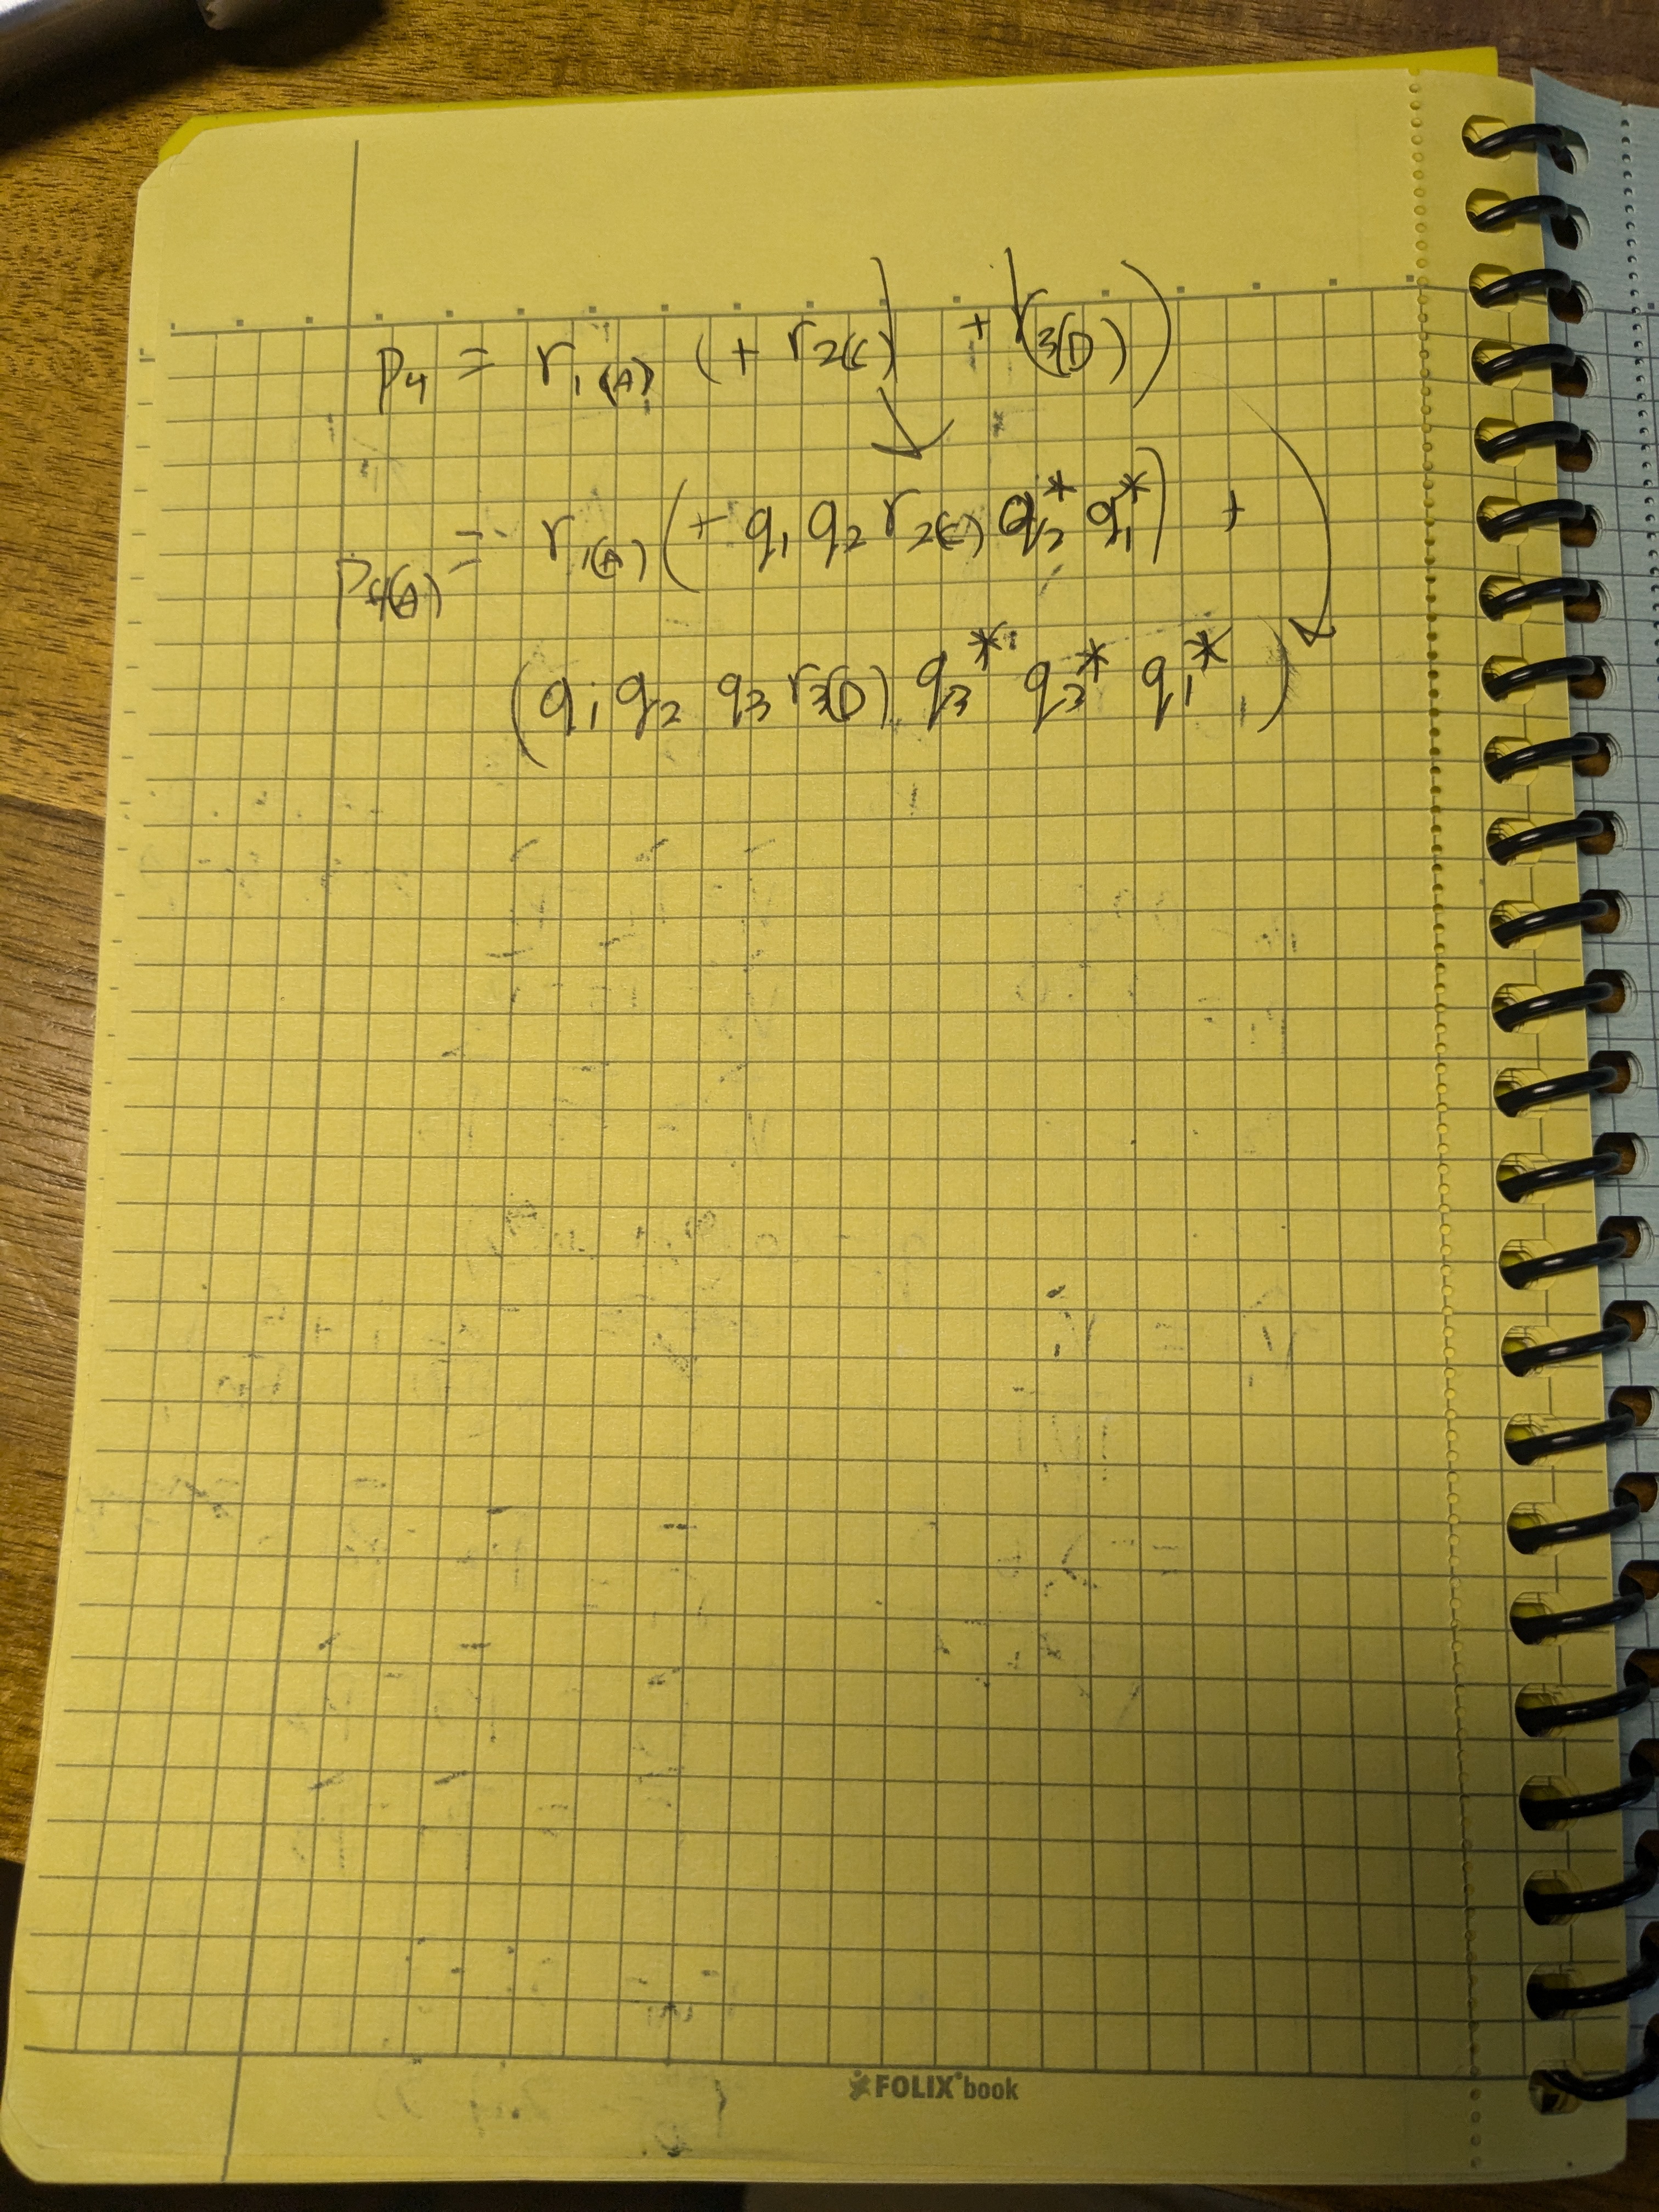 P4 = r1(A) (+ r2(C) + r3(D))
P4(A) = r1(A) (+ q1 q2 r2(C) q2* q1*) +
(q1 q2 q3 r3(D) q3* q2* q1*)
FOLIX book